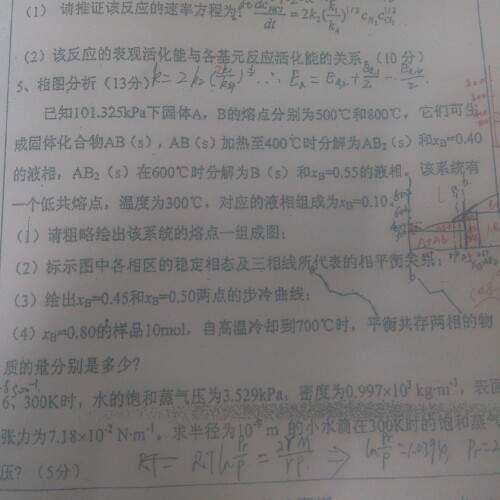 (1) 请推证该反应的速率方程为:
(2) 该反应的表观活化能与各基元反应活化能的关系。(10 分)
5、相图分析 (13分)
已知101.325kPa下固体A，B的熔点分别为500℃和800℃，它们可生
成固体化合物AB (s)，AB (s) 加热至400℃时分解为AB₂ (s) 和x_B=0.40
的液相，AB₂ (s) 在600℃时分解为B (s) 和x_B=0.55的液相。该系统有
一个低共熔点，温度为300℃，对应的液相组成为x_B=0.10。
(1) 请粗略绘出该系统的熔点—组成图;
(2) 标示图中各相区的稳定相态及三相线所代表的相平衡关系;
(3) 绘出x_B=0.45和x_B=0.50两点的步冷曲线;
(4) x_B=0.80的样品10mol，自高温冷却到700℃时，平衡共存两相的物
质的量分别是多少?
6、300K时，水的饱和蒸气压为3.529kPa，密度为0.997×10³ kg·m⁻³，表面
张力为7.18×10⁻² N·m⁻¹。求半径为10⁻⁹ m 的小水滴在300K时的饱和蒸气
压? (5分)